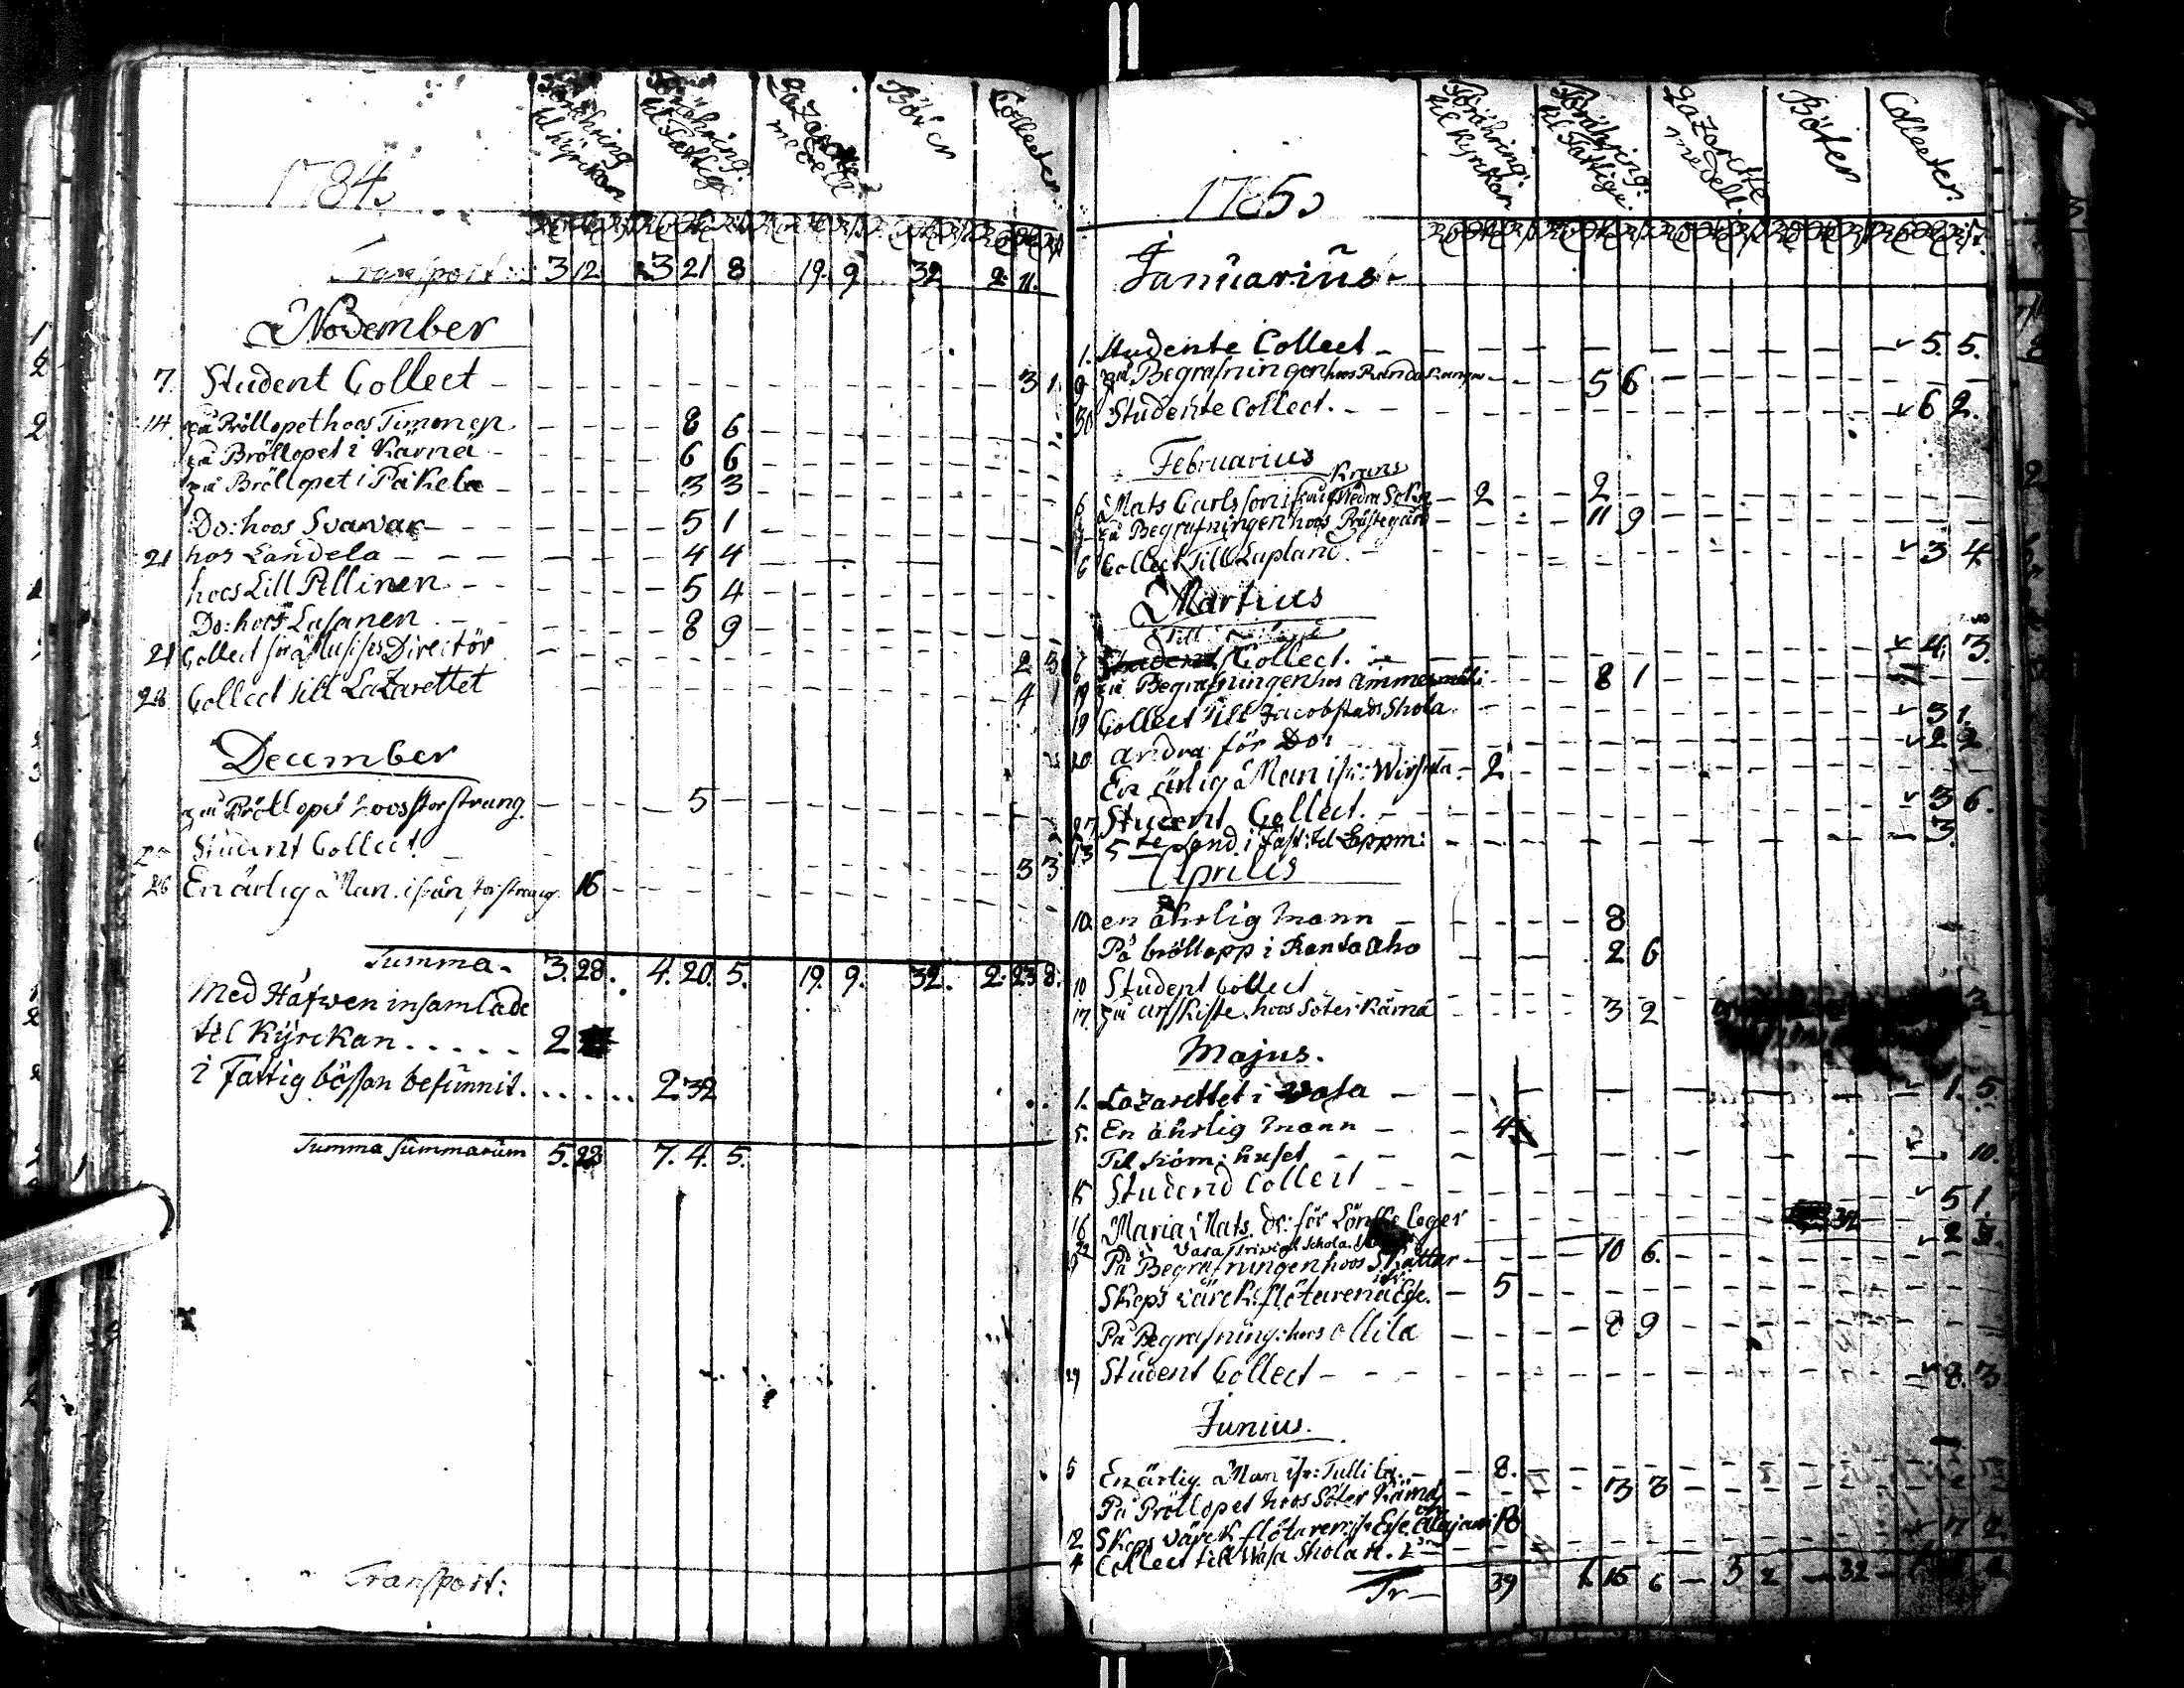 1784.
Förähring til Kyrckan
Föräring: til Fattig
Lazarette medell
Böter
Collecter
Transport: 3 12. 3 21 8 19. 9. 32 2. 11.
November
7. Student Collect 3 1
14. på Bröllopet hoos Timonen 8 6
på Bröllopet i Kärnä 6 6
på Bröllopet i Päkela 3 3
Do: hoos Svawar 5 1
21 hos Landela 4 4
hoos Lill Pellinen 5 4
Do: hoos Lasanen 8 9
21 Collect för Musises Directör 2 3
28 Collect till Lazarettet 4 1
December
på Bröllopet hoos Storstrang 5
Student Collect 3 3
26 En ärlig Man ifrån Storstrang 16
Summa. 3. 28. 4. 20. 5. 19. 9. 32. 2. 23 8.
Med Håfwen insamlade
til Kyrckan..... 2
i Fattig bössan befunnit...... 2 32
Summa Summarum 5. 28 7. 4. 5.
Transport:
1785.
Föráhring: til Kyrckan
Föráhring: til Fattige.
Lazarette medell.
Böter
Collecter
Januarius
1. Studente Collect 5. 5.
9 på Begrafningen hoos Randa Kanga 5 6
30 Studente Collect. 6 2.
Februarius
6 Mats Carlsson ifrån Nedra Soka 2 2
på Begrafningen hoos Prästegård 11 9
6 Collect Till Lapland 3 4
Martius
6 Collect. 4. 3.
på Begrafningen hos Ammesmäki 8 1
19 Collect till Jacobstads Skola 3 1.
20 andra för Do: 2 2
En ärlig Man ifr: Wirkkala 2
27 Student Collect. 3 6.
13 5te Sönd. i Fast: til Lappm: 3.
Aprilis
10. en åhrlig mann 8
På bröllopp i Kantoaho 2 6
10 Student Collect
17. på arfskifte hoos Söter Kärnä 3 2
Majus.
1. Lazarettet i Vasa 1. 5.
5. En åhrlig mann 4
Til huset 10.
15 Student Collect 5 1.
16 Maria Mats. dr: för Lönske leger 32
22 Vasa Trivial Schola 2 3.
På Begrafningen hoos Skattar 10 6.
Skeps värck: flötaren i Esse. 5
På Begrafning: hoos Ollila 8 9
29 Student Collect 8. 3
Junius.
5 En ärlig Man ifr: Tulli by. 8.
På Bröllopet hoos Söter Kärnä 13 3
12 Skeps värck flötaren ifr Esse 18
4 Collect till Wasa Skola 7 2.
Tr 39 1. 15 6 3 2 32